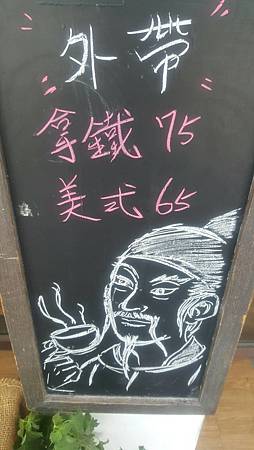 外帶
拿鐵 75
美式 65